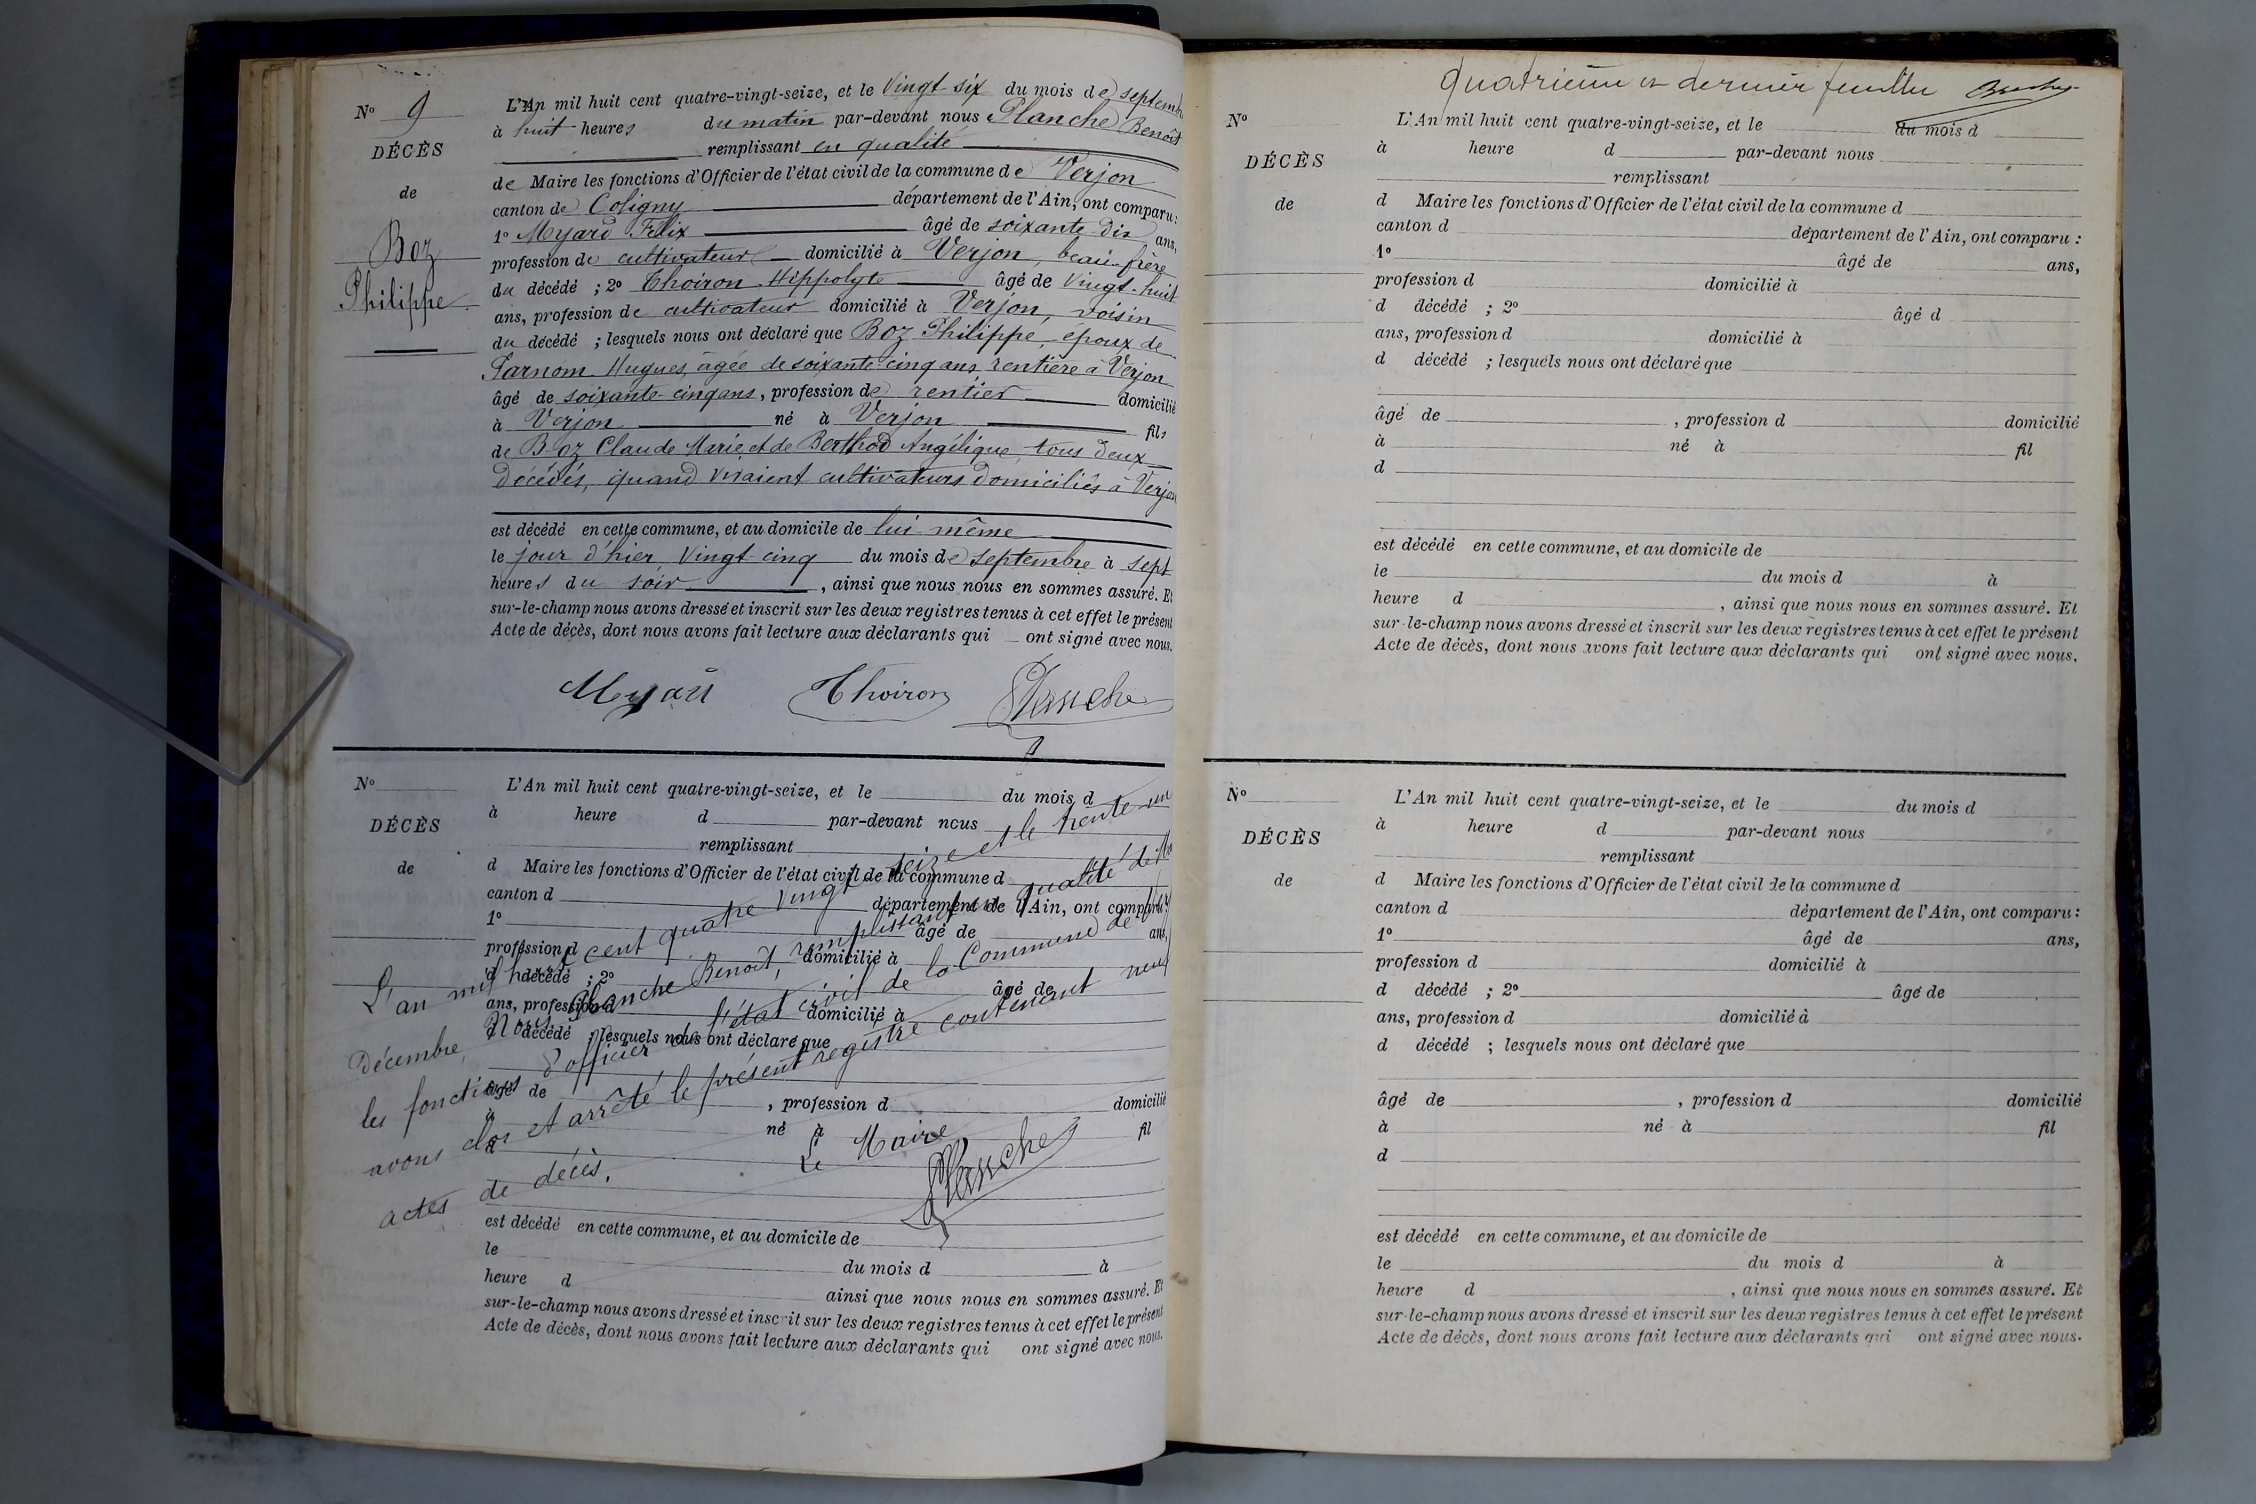 N° 9
DÉCÈS
de
Boz
Philippe
L'An mil huit cent quatre-vingt-seize, et le vingt six du mois de septembre
à huit heures du matin par-devant nous Planche Benoit
remplissant en qualité
de Maire les fonctions d'Officier de l'état civil de la commune de Verjon
canton de Coligny département de l'Ain, ont comparu :
1° Myard Félix âgé de soixante-dix ans,
profession de cultivateur domicilié à Verjon, beau-frère
du décédé ; 2° Thoiron Hippolyte âgé de vingt-huit
ans, profession de cultivateur domicilié à Verjon, voisin
du décédé ; lesquels nous ont déclaré que Boz Philippe, époux de
Parnom Hugues, âgée de soixante-cinq ans, rentière à Verjon
âgé de soixante-cinq ans, profession de rentier domicilié
à Verjon né à Verjon fils
de Boz Claude Marie, et de Berthod Angélique, tous deux
décédés, quand vivaient cultivateurs domiciliés à Verjon
est décédé en cette commune, et au domicile de lui même
le jour d'hier vingt cinq du mois de septembre à sept
heures du soir, ainsi que nous nous en sommes assuré. Et
sur-le-champ nous avons dressé et inscrit sur les deux registres tenus à cet effet le présent
Acte de décès, dont nous avons fait lecture aux déclarants qui ont signé avec nous.
Myard Thoiron Planche
N°
DÉCÈS
de
L'An mil huit cent quatre-vingt-seize, et le du mois d
à heure d par-devant nous
remplissant
d Maire les fonctions d'Officier de l'état civil de la commune d
canton d département de l'Ain, ont comparu :
1° âgé de ans,
profession d domicilié à
d décédé ; 2° âgé de
ans, profession d domicilié à
d décédé ; lesquels nous ont déclaré que
âgé de , profession d domicilié
à né à fil
d
est décédé en cette commune, et au domicile de
le du mois d à
heure d ainsi que nous nous en sommes assuré. Et
sur-le-champ nous avons dressé et inscrit sur les deux registres tenus à cet effet le présent
Acte de décès, dont nous avons fait lecture aux déclarants qui ont signé avec nous.
L'an mil huit cent quatre vingt seize et le trente un
Décembre, Nous Planche Benoit, remplissant en qualité de
les fonctions d'officier de l'état civil de la Commune de
avons clos et arrêté le présent registre contenant neuf
actes de décès.
Le Maire
Planche
quatrième et dernier feuillet
N°
DÉCÈS
de
L'An mil huit cent quatre-vingt-seize, et le du mois d
à heure d par-devant nous
remplissant
d Maire les fonctions d'Officier de l'état civil de la commune d
canton d département de l'Ain, ont comparu :
1° âgé de ans,
profession d domicilié à
d décédé ; 2° âgé d
ans, profession d domicilié à
d décédé ; lesquels nous ont déclaré que
âgé de , profession d domicilié
à né à fil
d
est décédé en cette commune, et au domicile de
le du mois d à
heure d , ainsi que nous nous en sommes assuré. Et
sur-le-champ nous avons dressé et inscrit sur les deux registres tenus à cet effet le présent
Acte de décès, dont nous avons fait lecture aux déclarants qui ont signé avec nous.
N°
DÉCÈS
de
L'An mil huit cent quatre-vingt-seize, et le du mois d
à heure d par-devant nous
remplissant
d Maire les fonctions d'Officier de l'état civil de la commune d
canton d département de l'Ain, ont comparu :
1° âgé de ans,
profession d domicilié à
d décédé ; 2° âgé de
ans, profession d domicilié à
d décédé ; lesquels nous ont déclaré que
âgé de , profession d domicilié
à né à fil
d
est décédé en cette commune, et au domicile de
le du mois d à
heure d , ainsi que nous nous en sommes assuré. Et
sur-le-champ nous avons dressé et inscrit sur les deux registres tenus à cet effet le présent
Acte de décès, dont nous avons fait lecture aux déclarants qui ont signé avec nous.